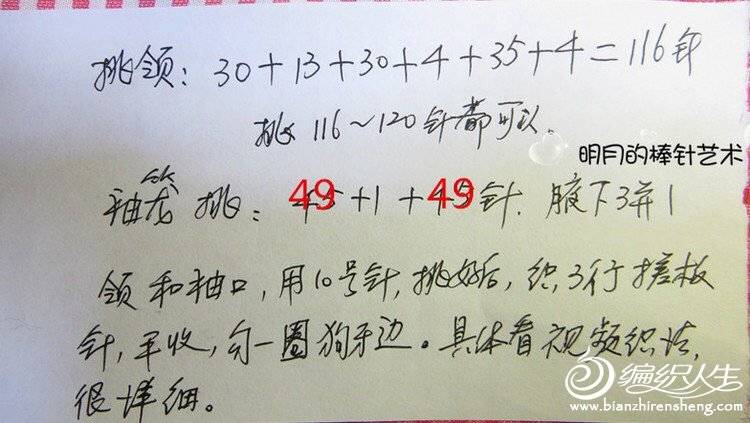 挑领：30+13+30+4+35+4=116针
挑 116～120针都可以.
明月的棒针艺术
袖笼 挑：49+1+49针. 腋下3并1
领和袖口,用10号针,挑好后,织3行搓板
针,平收,勾一圈狗牙边。具体看视频织法,
很详细。
编织人生
www.bianzhirensheng.com